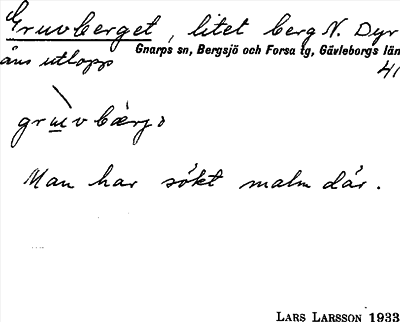 Gruvberget, litet berg N. Dyr
åns utlopp
Gnarps sn, Bergsjö och Forsa tg, Gävleborgs län
41
Man har sökt malm där.
LARS LARSSON 1933